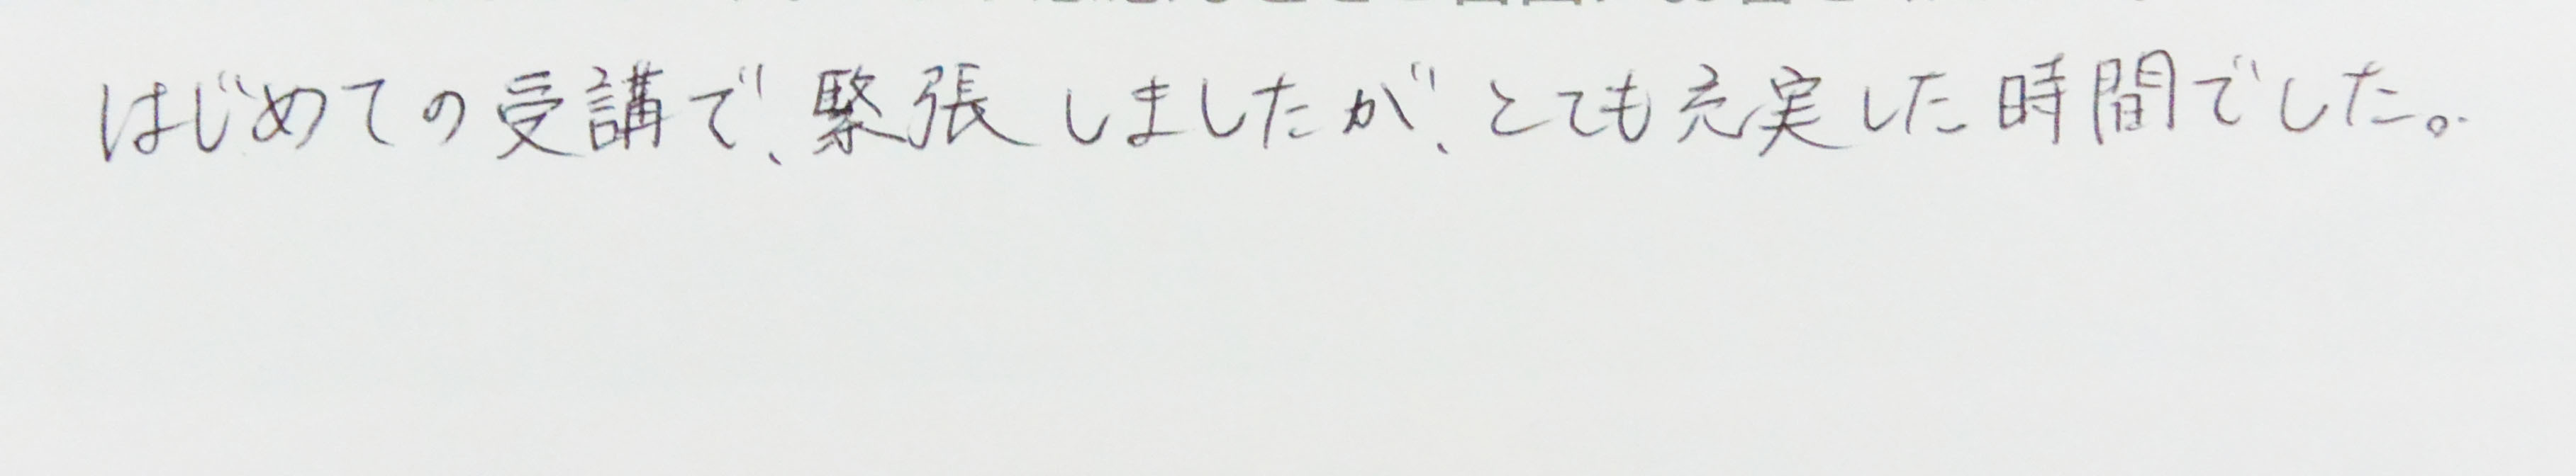 はじめての受講で、緊張しましたが、とても充実した時間でした。